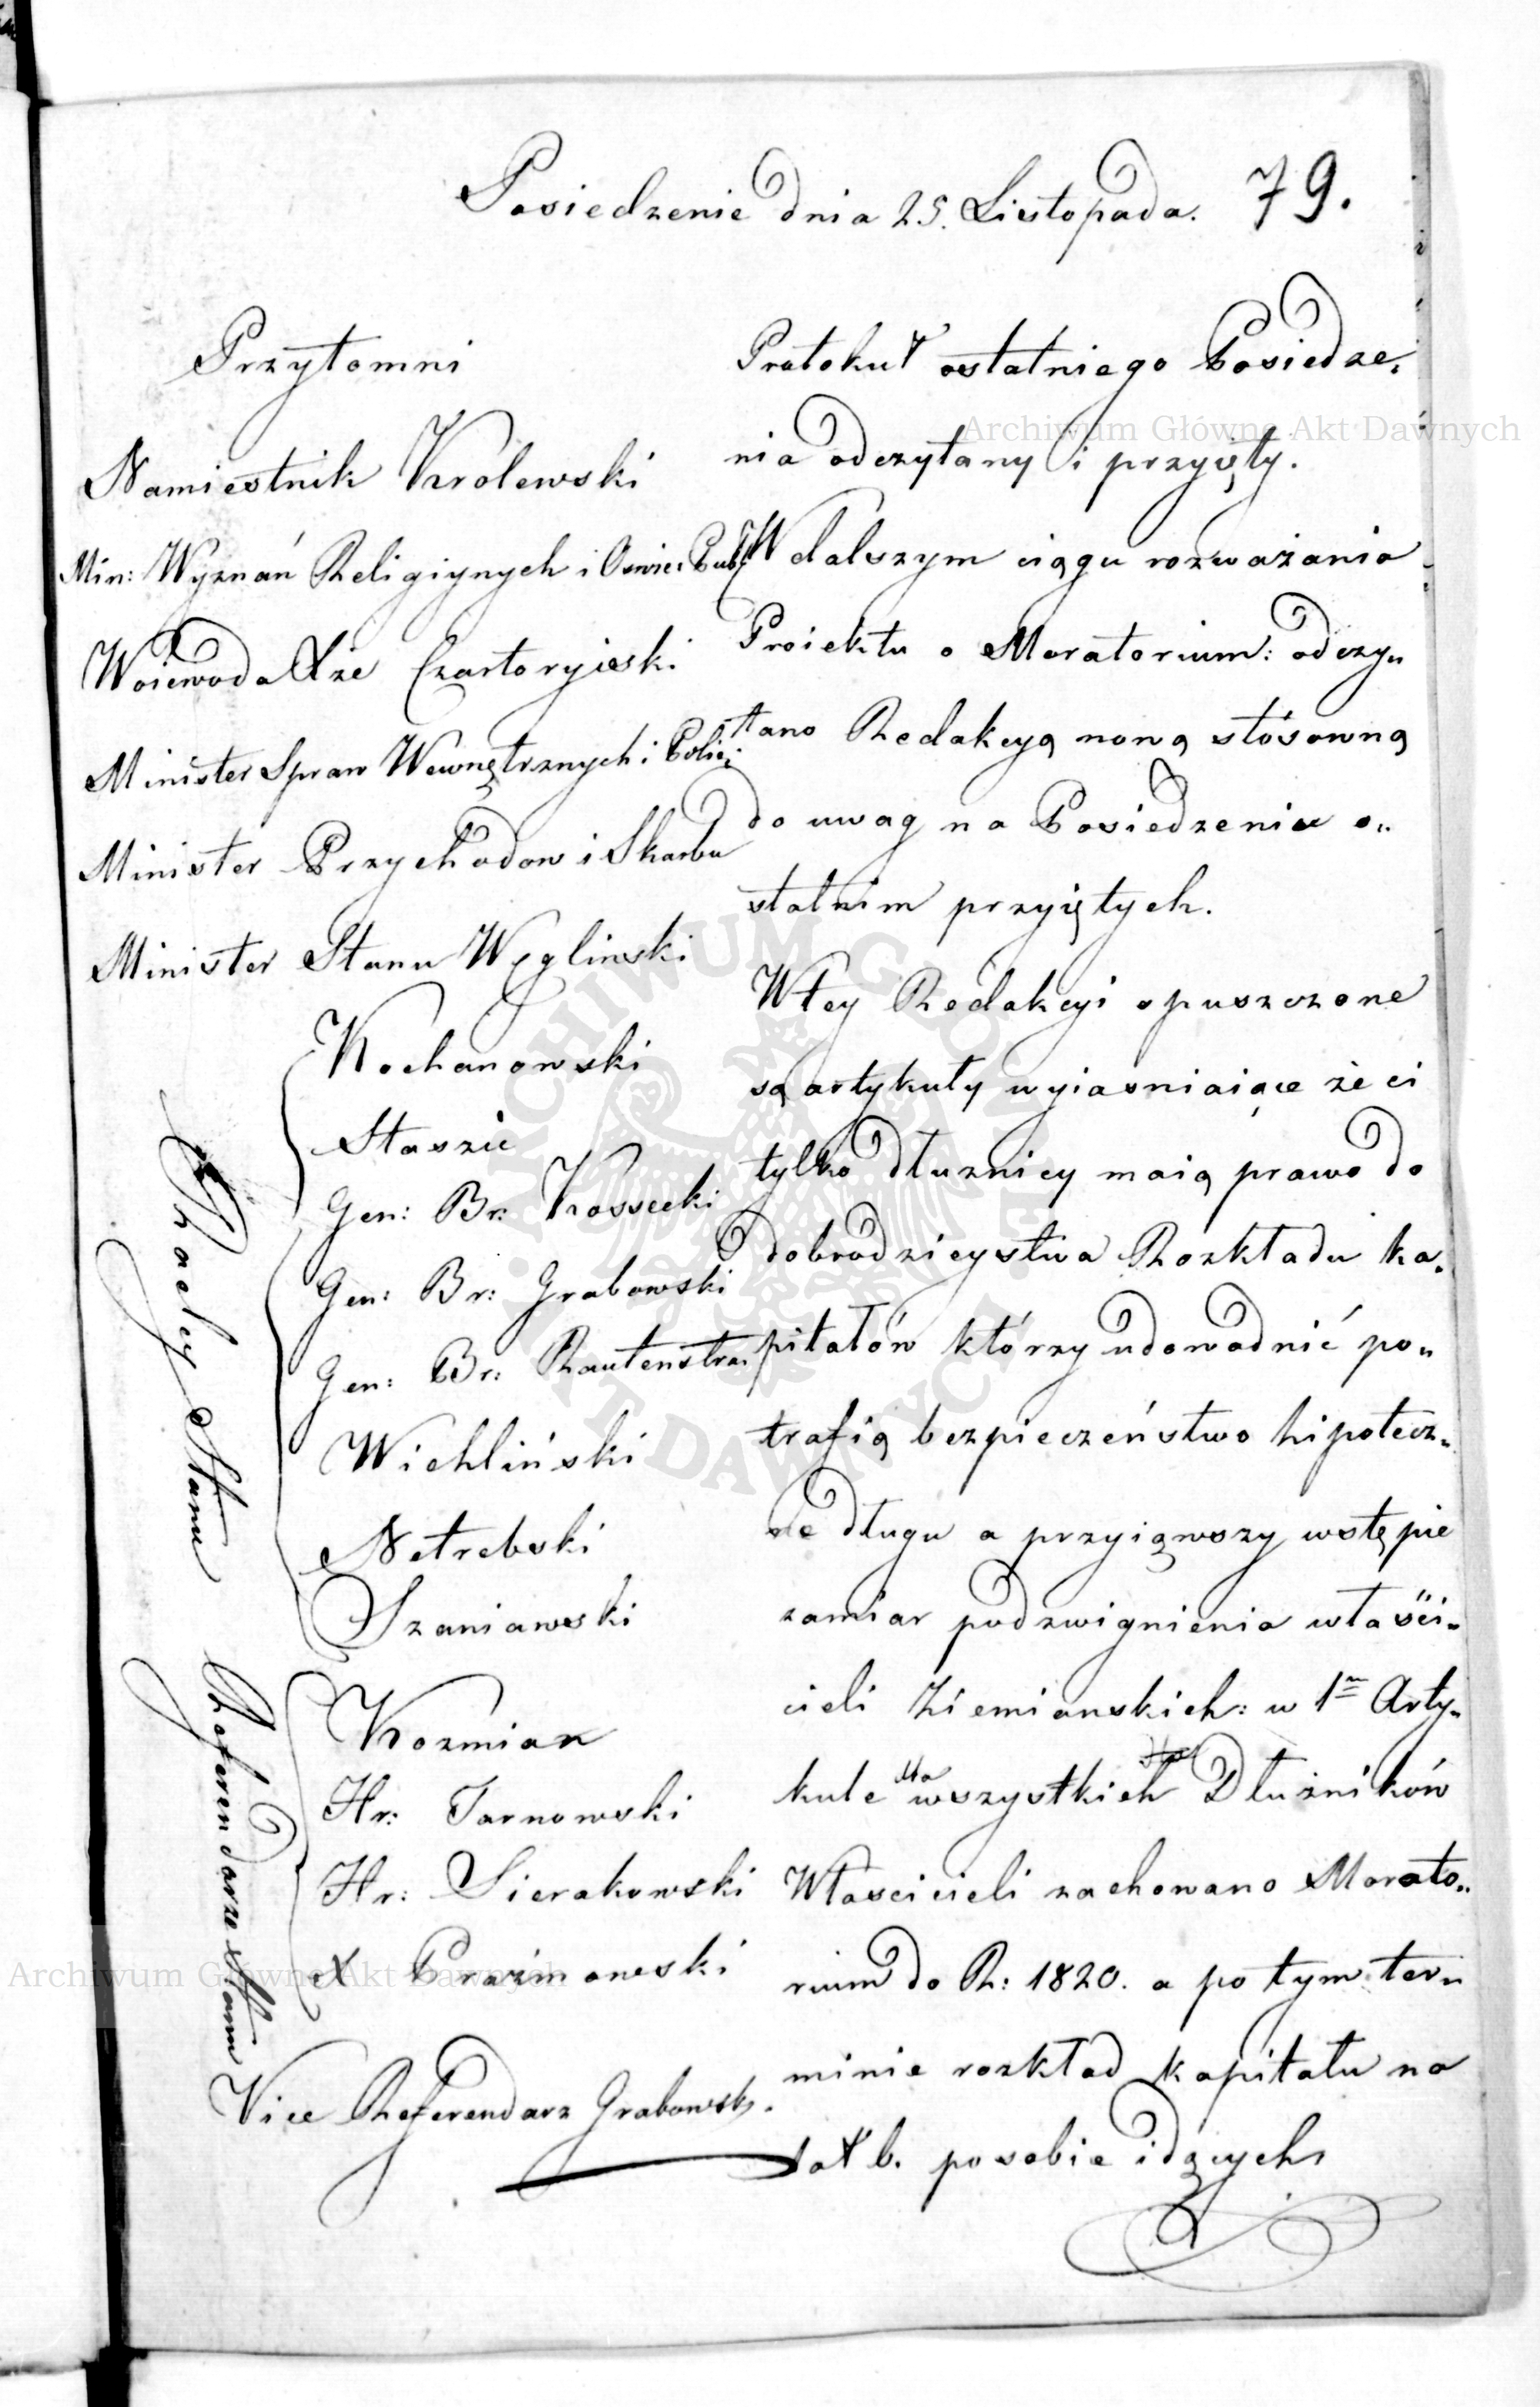 Posiedzenie dnia 25. Listopada. 79.
Przytomni
Namiestnik Krolewski
Min: Wyznań Religiynych i Oswiec: Publ:
Woiewoda Xże Czartoryiski
Minister Spraw Wewnętrznych i Policyi
Minister Przychodow i Skarbu
Minister Stanu Węglinski
Radcy Stanu
Kochanowski
Staszic
Gen: Br: Kossecki
Gen: Br: Grabowski
Gen: Br: Rautenstra:
Wichliński
Netrebski
Szaniawski
Referendarze Stanu
Kozmian
Hr: Tarnowski
Hr: Sierakowski
X Prażmowski
Vice Referendarz Grabowski.
Protokuł ostatniego Posiedze„
nia odczytany i przyięty.
W dalszym ciągu rozważania
Proiektu o Moratorium: odczy„
tano Redakcyą nową stósowną
do uwag na Posiedzeniu o„
statnim przyiętych.
W tey Redakcyi opuszczone
są artykuły wyiasniaiące że ci
tylko dłuznicy maią prawo do
dobrodzieystwa Rozkładu ka„
pitałów którzy udowodnić po„
trafią bezpieczeństwo hipotecz„
ne długu a przyiąwszy wstępie
zamiar podzwignienia właści„
cieli Ziemianskich: w 1m Arty„
kule dla wszystkich Dłużników
Włascicieli zachowano Morato„
rium do R: 1820. a po tym ter„
minie rozkład kapitału na
lat 6. po sobie idących
Archiwum Główne Akt Dawnych
Archiwum Główne Akt Dawnych
ARCHIWUM GŁÓWNE AKT DAWNYCH